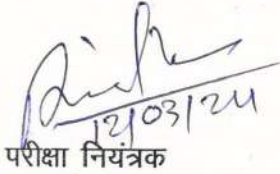 12/03/24
परीक्षा नियंत्रक